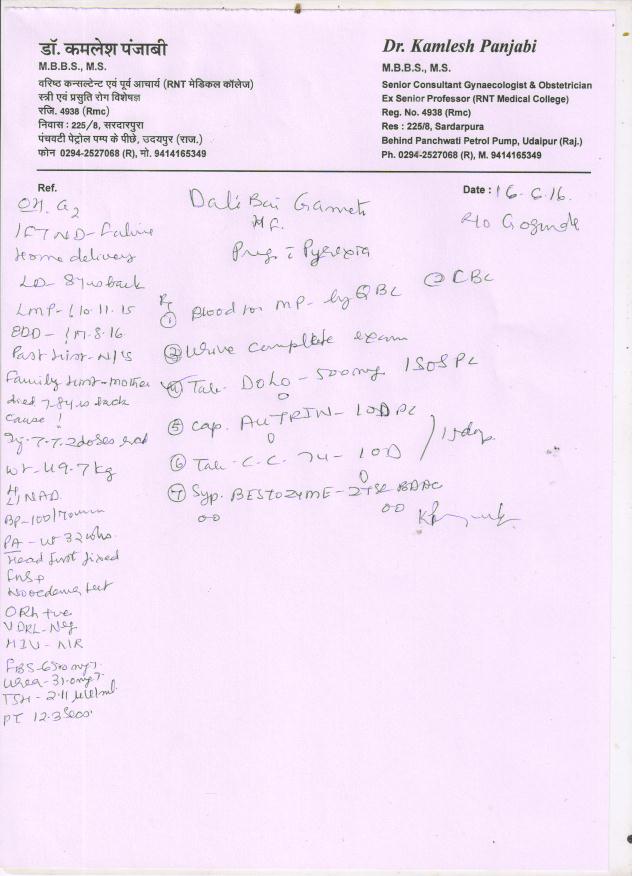 डॉ. कमलेश पंजाबी
M.B.B.S., M.S.
वरिष्ठ कन्सल्टेन्ट एवं पूर्व आचार्य (RNT मेडिकल कॉलेज)
स्त्री एवं प्रसुति रोग विशेषज्ञ
रजि. 4938 (Rmc)
निवास : 225/8, सरदारपुरा
पंचवटी पेट्रोल पम्प के पीछे, उदयपुर (राज.)
फोन 0294-2527068 (R), मो. 9414165349
Dr. Kamlesh Panjabi
M.B.B.S., M.S.
Senior Consultant Gynaecologist & Obstetrician
Ex Senior Professor (RNT Medical College)
Reg. No. 4938 (Rmc)
Res : 225/8, Sardarpura
Behind Panchwati Petrol Pump, Udaipur (Raj.)
Ph. 0294-2527068 (R), M. 9414165349
Ref.
Date : 16.6.16.
Dali Bai Gameti
R/o Gogunda
Preg c Pyrexia
G2
1FTND-
Home delivery
LD- 8yrs back
LMP- 10.11.15
EDD- 17.8.16
Past Hist- N/S
Family Hist- mother
died 7-8yrs back
cause !
Inj. T.T. 2 doses
Wt- 49.7 kg
NAD
BP-100/70mm
PA- Ut 32 wks
Head first fixed
FHS+
No oedema feet
ORh +ve
VDRL-Neg
HIV- N/R
FBS-
Urea-
TSH - 2.11
PT 12.3 Secs.
Rx
① Blood for MP- by QBC @ CBC
② Urine complete exam
④ Tab. DOLO- 500mg 1SOS PC
⑤ Cap. AUTRIN- 10D PC
⑥ Tab. C.C. - 10D
15 days
⑦ Syp. BESTOZYME- 2TSF BDAC